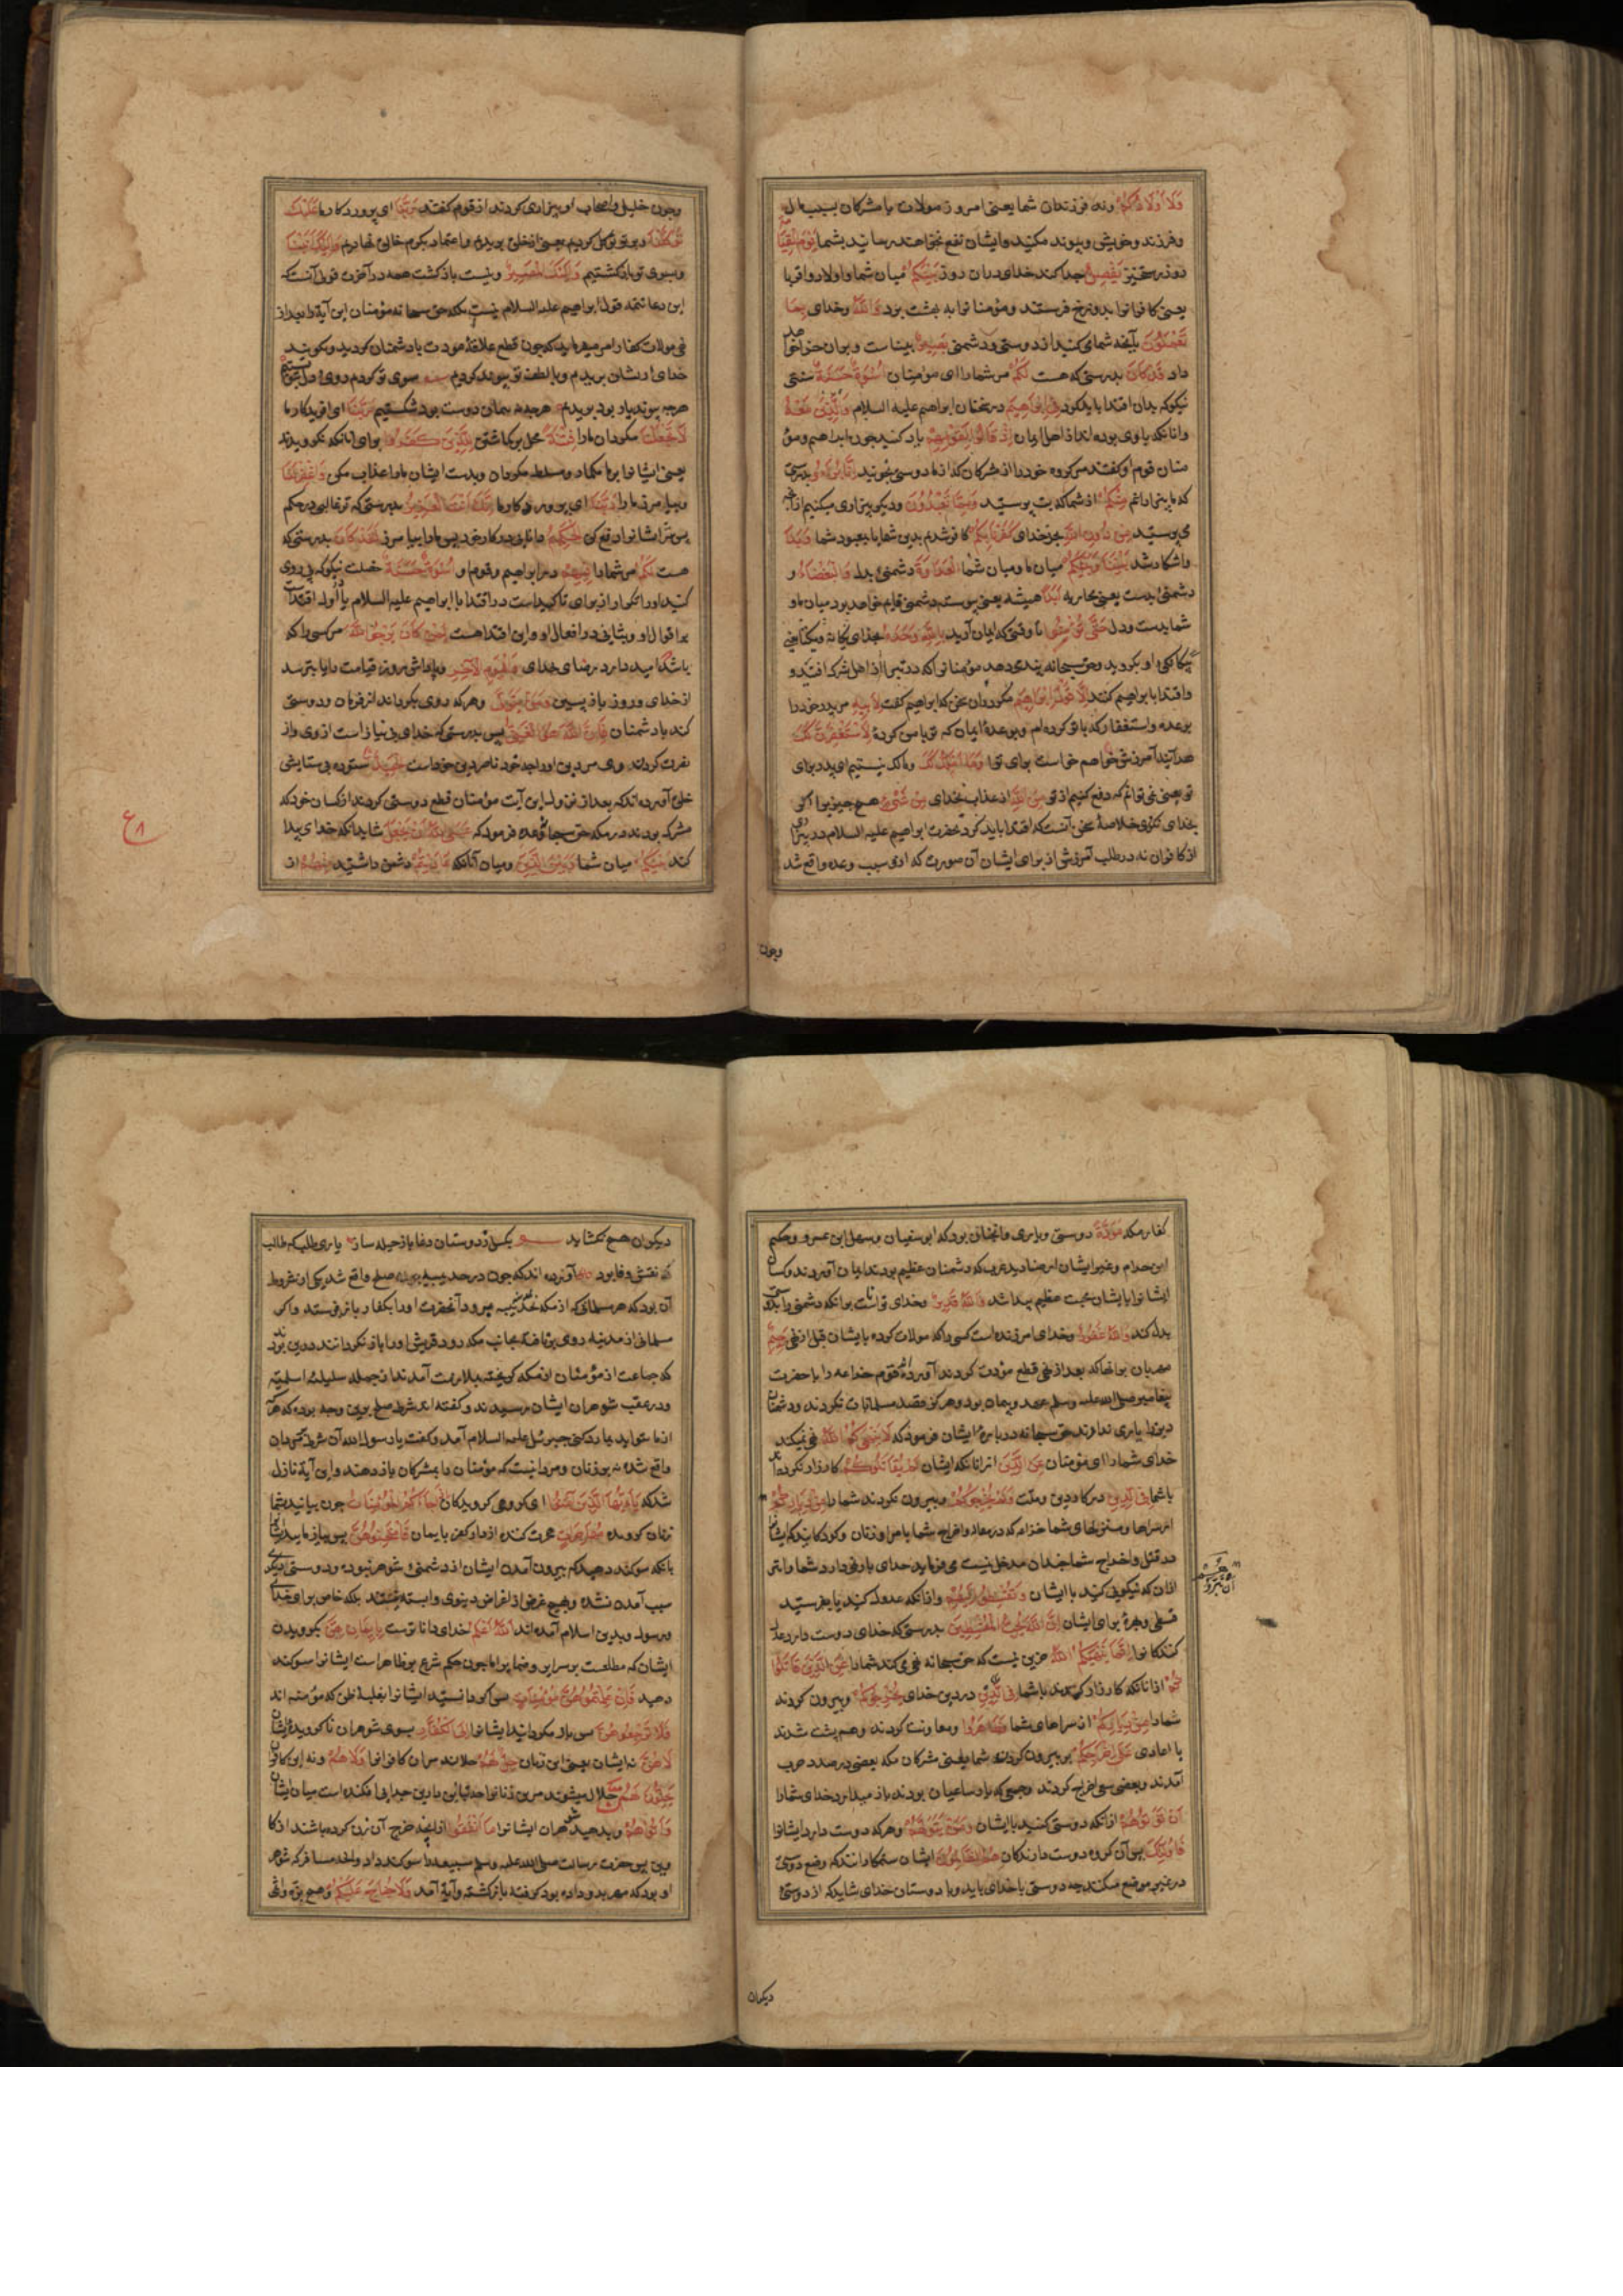 وَلَا أَوْلَادُكُمْ ونه فرزندان شما یعنی امروز موالات با مشرکان بسبب مال
وفرزند وخویشی وپیوند مکنید وایشان نفع نخواهند رسانید بشما یَوْمَ الْقِيٰمَة
روز رستخیز یَفْصِلُ جدا کند خدای دران روز بَیْنَکُمْ میان شما واولاد واقربا
یعنی کافرانرا بدوزخ فرستد ومؤمنانرا به بهشت برد وَاللّٰهُ وخدای بِمَا
تَعْمَلُوْنَ بآنچه شما می کنید از دوستی ودشمنی بَصِیْرٌ بیناست وبران جزا خواهد
داد قَدْ کَانَتْ بدرستی که هست لَکُمْ مر شمارا ای مؤمنان اُسْوَةٌ حَسَنَةٌ سنتی
نیکو که بدان اقتدا باید کرد فِی اِبْرَاهِیْمَ در سخنان ابراهیم علیه السلام وَالَّذِیْنَ مَعَهٗ
وانانکه با وی بوده اند از اهل ایمان اِذْ قَالُوْا لِقَوْمِهِمْ یاد کنید چون ابراهیم ومؤ
منان قوم او گفتند مر گروه خود را از مشرکان که از ما دوستی مجوئید اِنَّا بُرَءٰؤُا بدرستی
که ما بیزارانیم مِنْکُمْ از شما که بت پرستید وَمِمَّا تَعْبُدُوْنَ ودیگر بیزاری میکنیم ازانچه
می پرستید مِنْ دُوْنِ اللّٰهِ بجز خدای کَفَرْنَا بِکُمْ کافر شدیم بدین شما یا بمعبود شما وَبَدَا
واشکارا شد بَیْنَنَا وَبَیْنَکُمُ میان ما ومیان شما الْعَدَاوَةُ دشمنی بدل وَالْبَغْضَاءُ و
دشمنی بدست یعنی محاربه اَبَدًا همیشه یعنی پیوسته دشمنی قایم خواهد بود میان ما و
شما بدست ودل حَتّٰی تُؤْمِنُوْا تا وقتی که ایمان آرید بِاللّٰهِ وَحْدَهٗ بخدای یگانه ویکتا یعنی
بیگانگی او بگروید وحق سبحانه پندی دهد مؤمنانرا که در تبرا از اهل شرک افتید و
واقتدا بابراهیم کنند اِلَّا قَوْلَ اِبْرَاهِیْمَ مگر دران سخن که ابراهیم گفت لِاَبِیْهِ مر پدر خود را
بوعده واستغفار که با تو کرده ام وبوعدۀ ایمان که تو با من کردۀ لَاَسْتَغْفِرَنَّ لَكَ
هر آینه آمرزش خواهم خواست برای تو وَمَا اَمْلِكُ لَكَ ومالک نیستم ای پدر برای
تو یعنی نمی توانم که دفع کنم از تو مِنَ اللّٰهِ از عذاب خدای مِنْ شَیْءٍ هیچ چیز را اگر
بخدای نگروی خلاصۀ سخن آنست که اقتدا باید کرد بحضرت ابراهیم علیه السلام در بیزاری
از کافران نه در طلب آمرزش از برای ایشان آن صورت که ازو بسبب وعده واقع شد
وچون
وچون خلیل واصحاب او بیزاری کردند از قوم گفتند رَبَّنَا ای پروردگار ما عَلَیْكَ
تَوَکَّلْنَا وبر تو توکل کردیم یعنی از خلق بریدیم واعتماد بکرم خالق نهادیم وَاِلَیْكَ اَنَبْنَا
وبسوی تو بازگشتیم وَاِلَیْكَ الْمَصِیْرُ وبتست بازگشت همه در آخرت قولی آنست که
این دعا تتمه قول ابراهیم علیه السلام نیست بلکه حق سبحانه مؤمنان این آیة را بعد از
نهی موالات کفار امر میفرماید که چون قطع علاقۀ مودت با دشمنان کردید وبگوئید
خدای از یشان بریدیم وبا لطف تو پیوند کردیم سوی تو کردیم روی ودل
هرچه پیوند یار بود بریدیم هرچه نه پیمان دوست بود شکستیم رَبَّنَا ای افریدگار ما
لَا تَجْعَلْنَا مگردان ما را فِتْنَةً محل برگماشتن لِلَّذِیْنَ کَفَرُوْا برای آنانکه نگرویدند
یعنی ایشانرا بر ما مگمار ومسلط مگردان وبدست ایشان ما را عذاب مکن وَاغْفِرْلَنَا
وبیامرز ما را رَبَّنَا ای پروردگار ما اِنَّكَ اَنْتَ الْعَزِیْزُ بدرستی که تو غالبی در حکم
پس شر ایشانرا دفع کن الْحَکِیْمُ دانایی در کار خود پس ما را بیامرز لَقَدْ کَانَ بدرستی که
هست لَکُمْ مر شما را فِیْهِمْ در ابراهیم وقوم او اُسْوَةٌ حَسَنَةٌ خصلت نیکو که پی روی
کنید او را تکرار از برای تاکیدست در اقتدا با ابراهیم علیه السلام یا اول اقتداست
بر اقوال او وثانی در افعال او واین اقتدا هست لِمَنْ کَانَ یَرْجُوا اللّٰهَ مر کسی را که
باشد امید دارد برضای خدای وَالْیَوْمَ الْاٰخِرَ وپاداش روز قیامت را یا بترسد
از خدای وروز بازپسین وَمَنْ یَتَوَلَّ وهر که روی بگرداند از فرمان ودوستی
کند با دشمنان فَاِنَّ اللّٰهَ هُوَ الْغَنِیُّ پس بدرستی که خدای بی نیاز است از وی واز
نصرت کردن وی مر دین او را چه خود ناصر دین خودست الْحَمِیْدُ ستوده بی ستایش
خلق آورده اند که بعد از نزول این آیت مؤمنان قطع دوستی کردند از کسان خود که
مشرک بودند در مکه حق سبحانه وعده فرمود که عَسَی اللّٰهُ اَنْ یَجْعَلَ شاید آنکه خدای پیدا
کند بَیْنَکُمْ میان شما وَبَیْنَ الَّذِیْنَ ومیان آنانکه عَادَیْتُمْ دشمن داشتید مِنْهُمْ از
ع۸
کفار مکه مَوَدَّةً دوستی ویاری وانچنان بود که ابو سفیان وسهل ابن عمرو وحکیم
ابن حزام وغیر ایشان از صنادید عرب که دشمنان عظیم بودند ایمان آوردند وکسان
ایشانرا با ایشان محبت عظیم پیدا شد وَاللّٰهُ قَدِیْرٌ وخدای تواناست برانکه دشمنی را بدوستی
بدل کند وَاللّٰهُ غَفُوْرٌ وخدای آمرزنده است کسی را که موالات کرده با ایشان قبل از نهی رَحِیْمٌ
مهربان برانها که بعد از نهی قطع مودت کردند آورده اند که قوم خزاعه را با حضرت
پیغامبر صلی الله علیه وسلم عهد وپیمان بود وهرگز قصد مسلمانان نکردند ودشمنان
دین را یاری ندادند حق سبحانه در بارۀ ایشان فرمود که لَا یَنْهٰکُمُ اللّٰهُ نهی نمیکند
خدای شما را ای مؤمنان عَنِ الَّذِیْنَ از آنانکه ایشان لَمْ یُقَاتِلُوْکُمْ کارزار نکرده اند
با شما فِی الدِّیْنِ در کار دین وملت وَلَمْ یُخْرِجُوْکُمْ وبیرون نکردند شما را مِنْ دِیَارِکُمْ
از سراها ومنزلهای شما خزاعه که در معاداة واخراج شما با مرا وزنان وکودکان که ایشانرا
در قتل واخراج شما چندان مدخل نیست می فرماید خدای باز نمی دارد شما را از
اَنْ تَبَرُّوْهُمْ
ازان که نیکویی کنید با ایشان وَتُقْسِطُوْا اِلَیْهِمْ وازانکه عدول کنید یا بفرستید
قسطی وبهرۀ برای ایشان اِنَّ اللّٰهَ یُحِبُّ الْمُقْسِطِیْنَ بدرستی که خدای دوست دارد عدل
کنندگانرا اِنَّمَا یَنْهٰکُمُ اللّٰهُ جز این نیست که حق سبحانه نهی می کند شما را عَنِ الَّذِیْنَ قَاتَلُوْ
کُمْ ازانانکه کارزار کردند با شما فِی الدِّیْنِ در دین خدای وَاَخْرَجُوْکُمْ وبیرون کردند
شما را مِنْ دِیَارِکُمْ از سراهای شما وَظَاهَرُوْا ومعاونت کردند وهم پشت شدند
با اعادی عَلٰی اِخْرَاجِکُمْ بر بیرون کردن شما یعنی مشرکان مکه بعضی در صدد حرب
آمدند وبعضی سعی اخراج کردند وجمعی که یار ساعیان بودند باز میدارد خدای شما را
اَنْ تَوَلَّوْهُمْ ازانکه دوستی کنید با ایشان وَمَنْ یَتَوَلَّهُمْ وهرکه دوست دارد ایشانرا
فَاُولٰئِكَ پس آن گروه دوست دارندگان هُمُ الظّٰلِمُوْنَ ایشان ستمکارانند که وضع دوستی
در غیر موضع میکنند چه دوستی با خدای باید وبا دوستان خدای شاید که از دوستی
دیکران
دیکران هیچ نکشاید بکسل ز دوستان دغاباز حیله ساز یاری طلب که طالب
نقش وفا بود آورده اند که چون در حدیبیه صلح واقع شد یکی از شروط
آن بود که هر مسلمانی که از مکه بمدینه میرود آنحضرت او را بکفار باز فرستد واگر
مسلمانی از مدینه روی برتافته بجانب مکه رود قریش او را باز نگردانند
که جماعت از مؤمنان از مکه گریخته بملازمت آمدند از جمله سلیلۀ اسلمیه
ودر عقب شوهران ایشان رسیدند وگفته اند شرط صلح برین وجه بوده که هر که
از ما بتو آید باز رد کنی جبرئیل علیه السلام آمد وگفت یا رسول الله آن شرط بر مردان
واقع شده نه بر زنان ومردان نیست که مؤمنان را بمشرکان باز دهند واین آیة نازل
شد که یٰاَیُّهَا الَّذِیْنَ اٰمَنُوْا ای گروهی که گرویدگان اِذَا جَاءَکُمُ الْمُؤْمِنَاتُ چون بیایند بشما
زنان گرونده مُهَاجِرَاتٍ هجرت کننده از دار کفر بایمان فَامْتَحِنُوْهُنَّ پس بیازمایید ایشانرا
بانکه سوگند دهید که بیرون آمدن ایشان از دشمنی شوهر نبوده ودوستی دیگری
سبب آمدن نشده وهیچ غرضی از اغراض دنیوی وابسته نیستند بلکه خاص برای خدای
ورسول وبدین اسلام آمده اند اَللّٰهُ اَعْلَمُ خدای داناترست بِاِیْمَانِهِنَّ بگرویدن
ایشان که مطلعست بر سرایر وضمایر اما چون حکم شرع بر ظاهر است ایشانرا سوگند
دهید فَاِنْ عَلِمْتُمُوْهُنَّ مُؤْمِنَاتٍ پس اگر دانستید ایشانرا بغلبۀ ظن که مؤمنه اند
فَلَا تَرْجِعُوْهُنَّ پس باز مگردانید ایشانرا اِلَی الْکُفَّارِ بسوی شوهران ناگرویدۀ ایشان
لَا هُنَّ نه ایشان یعنی این زنان حِلٌّ لَهُمْ حلالند مران کافرانرا وَلَا هُمْ ونه این کافران
یَحِلُّوْنَ لَهُنَّ حلال میشوند مر این زنانرا چه تباین دارین جدایی افکنده است میان ایشان
وَاٰتُوْهُمْ وبدهید شوهران ایشانرا مَا اَنْفَقُوْا آنچه خرج آن زن کرده باشند از کا
وین پس حضرت رسالت صلی الله علیه وسلم سبیعه را سوگند داد مسافر که شوهر
او بود که مهر بدو داده بود گرفته بازگشت وآیة آمد وَلَا جُنَاحَ عَلَیْکُمْ وهیچ بزه وانمی